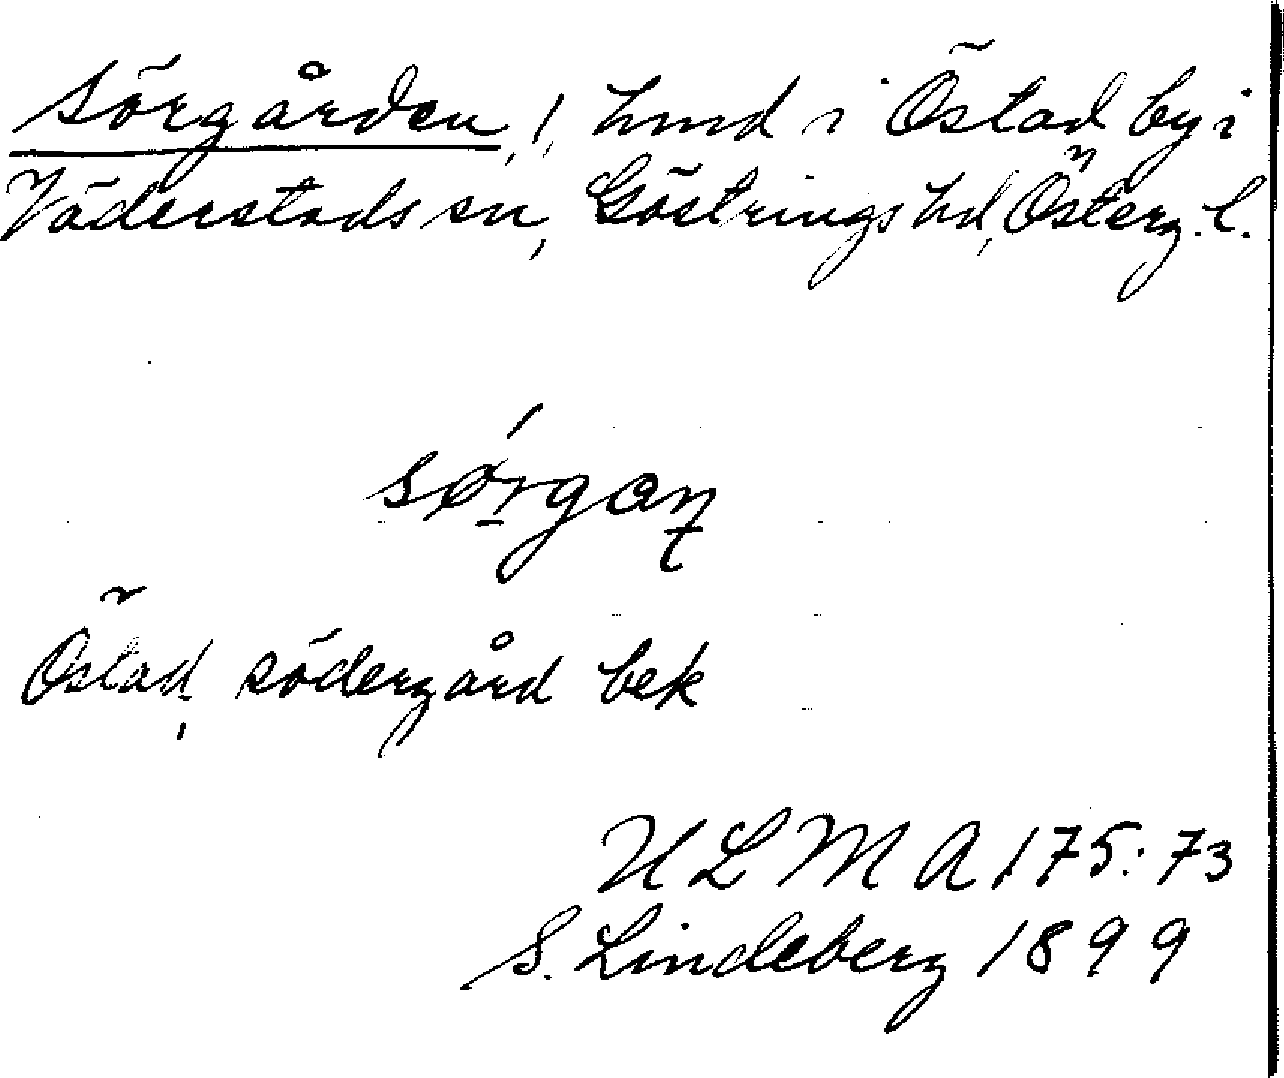 Sörgården, 1, hmd i Östad by i
Väderstads sn, Göstrings hd, Österg. l.
sørgaɳ
Östad, södergård bek
ULMA 175:73
S. Lindeberg 1899